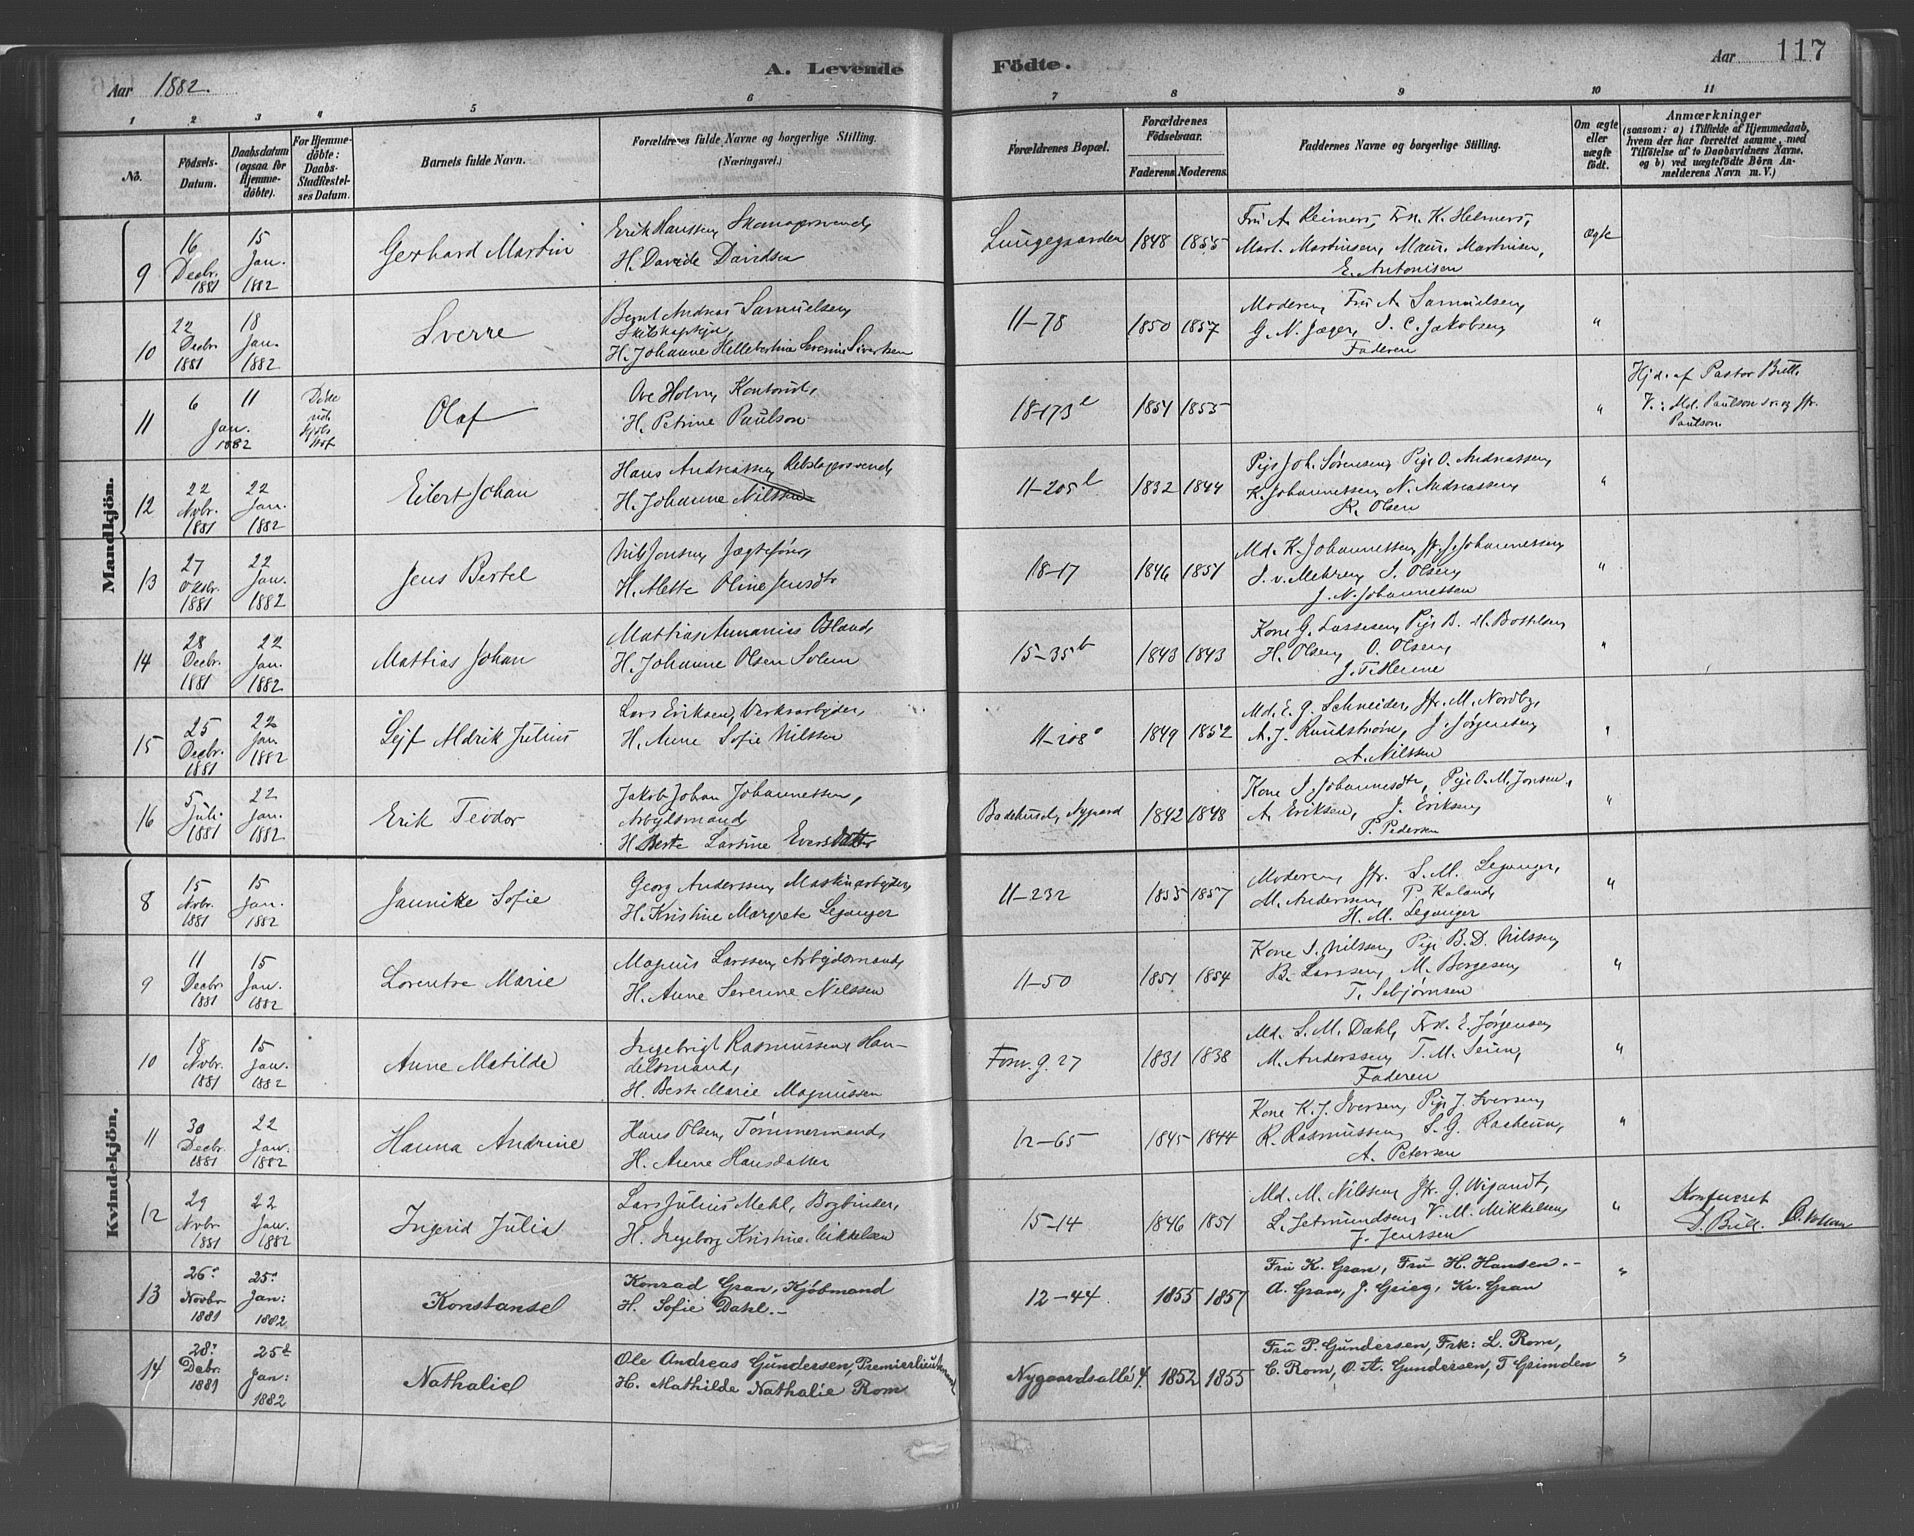 Aar 1882.
A. Levende Födte.
Aar 117
1 2 3 4 5 6 7 8 9 10 11
No. Födsels-Datum. Daabsdatum (ogsaa for Hjemmedöbte). For Hjemmedöbte: Daabs-Stadfæstelses Datum. Barnets fulde Navn. Forældrenes fulde Navne og borgerlige Stilling. (Næringsvei.) Forældrenes Bopæl. Forældrenes Födselsaar. Faderens Moderens. Faddernes Navne og borgerlige Stilling. Om ægte eller uægte födt. Anmærkninger (saasom: a) i Tilfælde af Hjemmedaab, hvem der har forrettet samme, med Tilföielse af to Daabsvidners Navne, og b) ved uægtefödte Börn Anmelderens Navn m. V.)
Mandkjön.
9 16 Decbr. 1881 15 Jan. 1882 Gerhard Martin Erik Hanssen, Skomagersvend, H. Davide Davidsen Lungegaarden 1848 1855 Fru A. Reimers, Frk. K. Helmers, Mart. Martinsen, Martinsen, E. Antonisen ægte
10 22 Decbr 1881 18 Jan. 1882 Sverre Bernt Andreas Samuelsen, H. Johanne Hellebertine Severine Sivertsen 11-78 1850 1857 Moderen, Fru A. Samuelsen, G. N. Jæger, J. C. Jakobsen, Faderen "
11 6 11 Jan. 1882 Olaf Ove Holm, Kontorist, H. Petrine Paulson 18-173 1854 1855 " Hjd. af Pastor Bull. V.: Md. Paulson sr. og Jfr. Paulson.
12 22 Novbr. 1881 22 Jan. 1882 Eilert Johan Hans Andreassen, Rebslagersvend, H. Johanne Nilssen 11-205 1832 1844 Pige Joh. Sørensen, Pige O. Andreassen, K. Johannessen, N. Andreassen, R. Olsen "
13 27 Oktbr. 1881 22 Jan. 1882 Jens Bertel Nils Jonsen, Jægtefører, H. Mette Oline Jensdtr 18-17 1846 1851 Md. K. Johannessen, Jfr. J. Johannessen, J. v. Mehren, J. Olsen, J. N. Johannessen "
14 28 Decbr. 1881 22 Jan. 1882 Mattias Johan Mattias H. Johanne Olsen Solem 15-35b 1843 1843 Kone G. Lassesen, Pige B. M. Bottelsen, H. Olsen, O. Olsen, "
15 25 Decbr. 1881 22 Jan 1882 Lejf Aldrik Julius Lars Eriksen, Verksarbeyder, H. Anne Sofie Nilssen 11-208 1849 1852 Md. E. G. Schneider, Jfr. M. Nordby, A. J. Rundstrøm, J. Jørgensen, A. Nilssen "
16 5 Juli 1881 22 Jan. 1882 Erik Teodor Jakob Johan Johannessen, Arbejdsmand, H. Berte Larsine Eversdatter Badehuset, Nygaard 1842 1848 Kone J. Johannesdtr, Pige O. M. Jonsen, A. Eriksen, J. Eriksen, P. Pedersen "
Kvindekjön.
8 15 Novbr. 1881 15 Jan. 1882 Jannike Sofie Georg Anderssen, Maskinarbejder, H. Kristine Margrete Leganger 11-232 1855 1857 Moderen, Jfr. S. M. Leganger, M. Anderssen, P. Kaland, H. M. Leganger "
9 11 Decbr 1881 15 Jan. 1882 Lorentse Marie Magnus Larssen, Arbejdsmand, H. Anne Severine Nilssen 11-50 1851 1854 Kone J. Nilssen, Pige B. D. Nilssen, B. Larssen, M. Borgesen, T. Sebjørnsen "
10 18 Novbr. 1881 15 Jan. 1882 Anne Matilde Ingebrigt Rasmussen, Handelsmand, H. Berte Marie Magnussen Fosw. g. 27 1831 1838 Md. S. M. Dahl, Frk. E. Jørgensen, M. Anderssen, T. M. Seim, Faderen "
11 30 Decbr. 1881 22 Jan. 1882 Hanna Andrine Hans Olsen, Tømmermand, H. Anne Hansdatter 12-65 1845 1844 Kone K. J. Iversen, Pige J. Iversen, R. Rasmussen, S. G. A. Petersen "
12 29 Novbr. 1881 22 Jan. 1882 Ingerid Julia Lars Julius Mehl, Bogbinder, H. Ingeborg Kristine Mikkelsen 15-14 1846 1851 Md. M. Nilssen, Jfr. G. Wigandt, L. Jetmundsen, V. M. Mikkelsen, J. Jenssen " Konfereret J. Bull.
13 26' Novbr 1881 25' Jan: 1882 Konstanse Konrad Gran, Kjøbmand H. Sofie Dahl.- 12-44 1855 1857 Fru K. Gran, Fru H. Hansen.- A. Gran, J. Grieg, Kr. Gran "
14 28' Debr. 1881 25d Jan: 1882 Nathalie Ole Andreas Gundersen, Premierlieutenand H. Mathilde Nathalie Rom Nygaardsallé 4. 1852 1855 Fru P. Gundersen, Frk: L. Rom, C. Rom, O. A. Gundersen, T. Grimden "